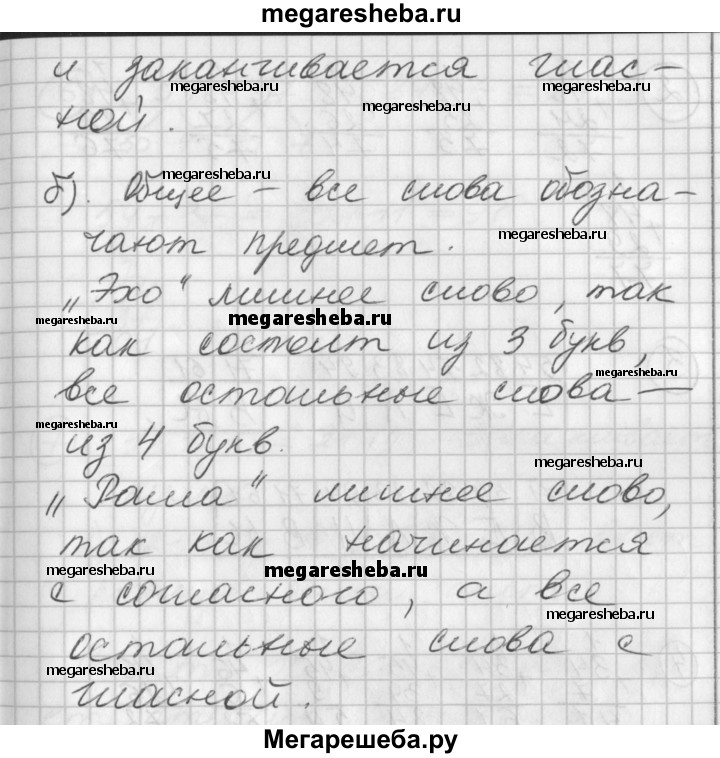 megaresheba.ru
и заканчивается глас-
megaresheba.ru
megaresheba.ru
ной.
megaresheba.ru
б). Общее – все слова обозна-
megaresheba.ru
чают предмет.
„Эхо“ лишнее слово, так
megaresheba.ru
megaresheba.ru
как состоит из 3 букв,
megaresheba.ru
все остальные слова —
megaresheba.ru
из 4 букв.
megaresheba.ru
„Рама“ лишнее слово,
так как начинается
megaresheba.ru
с согласного, а все
megaresheba.ru
остальные слова с
megaresheba.ru
гласной.
megaresheba.ru
Мегарешеба.ру